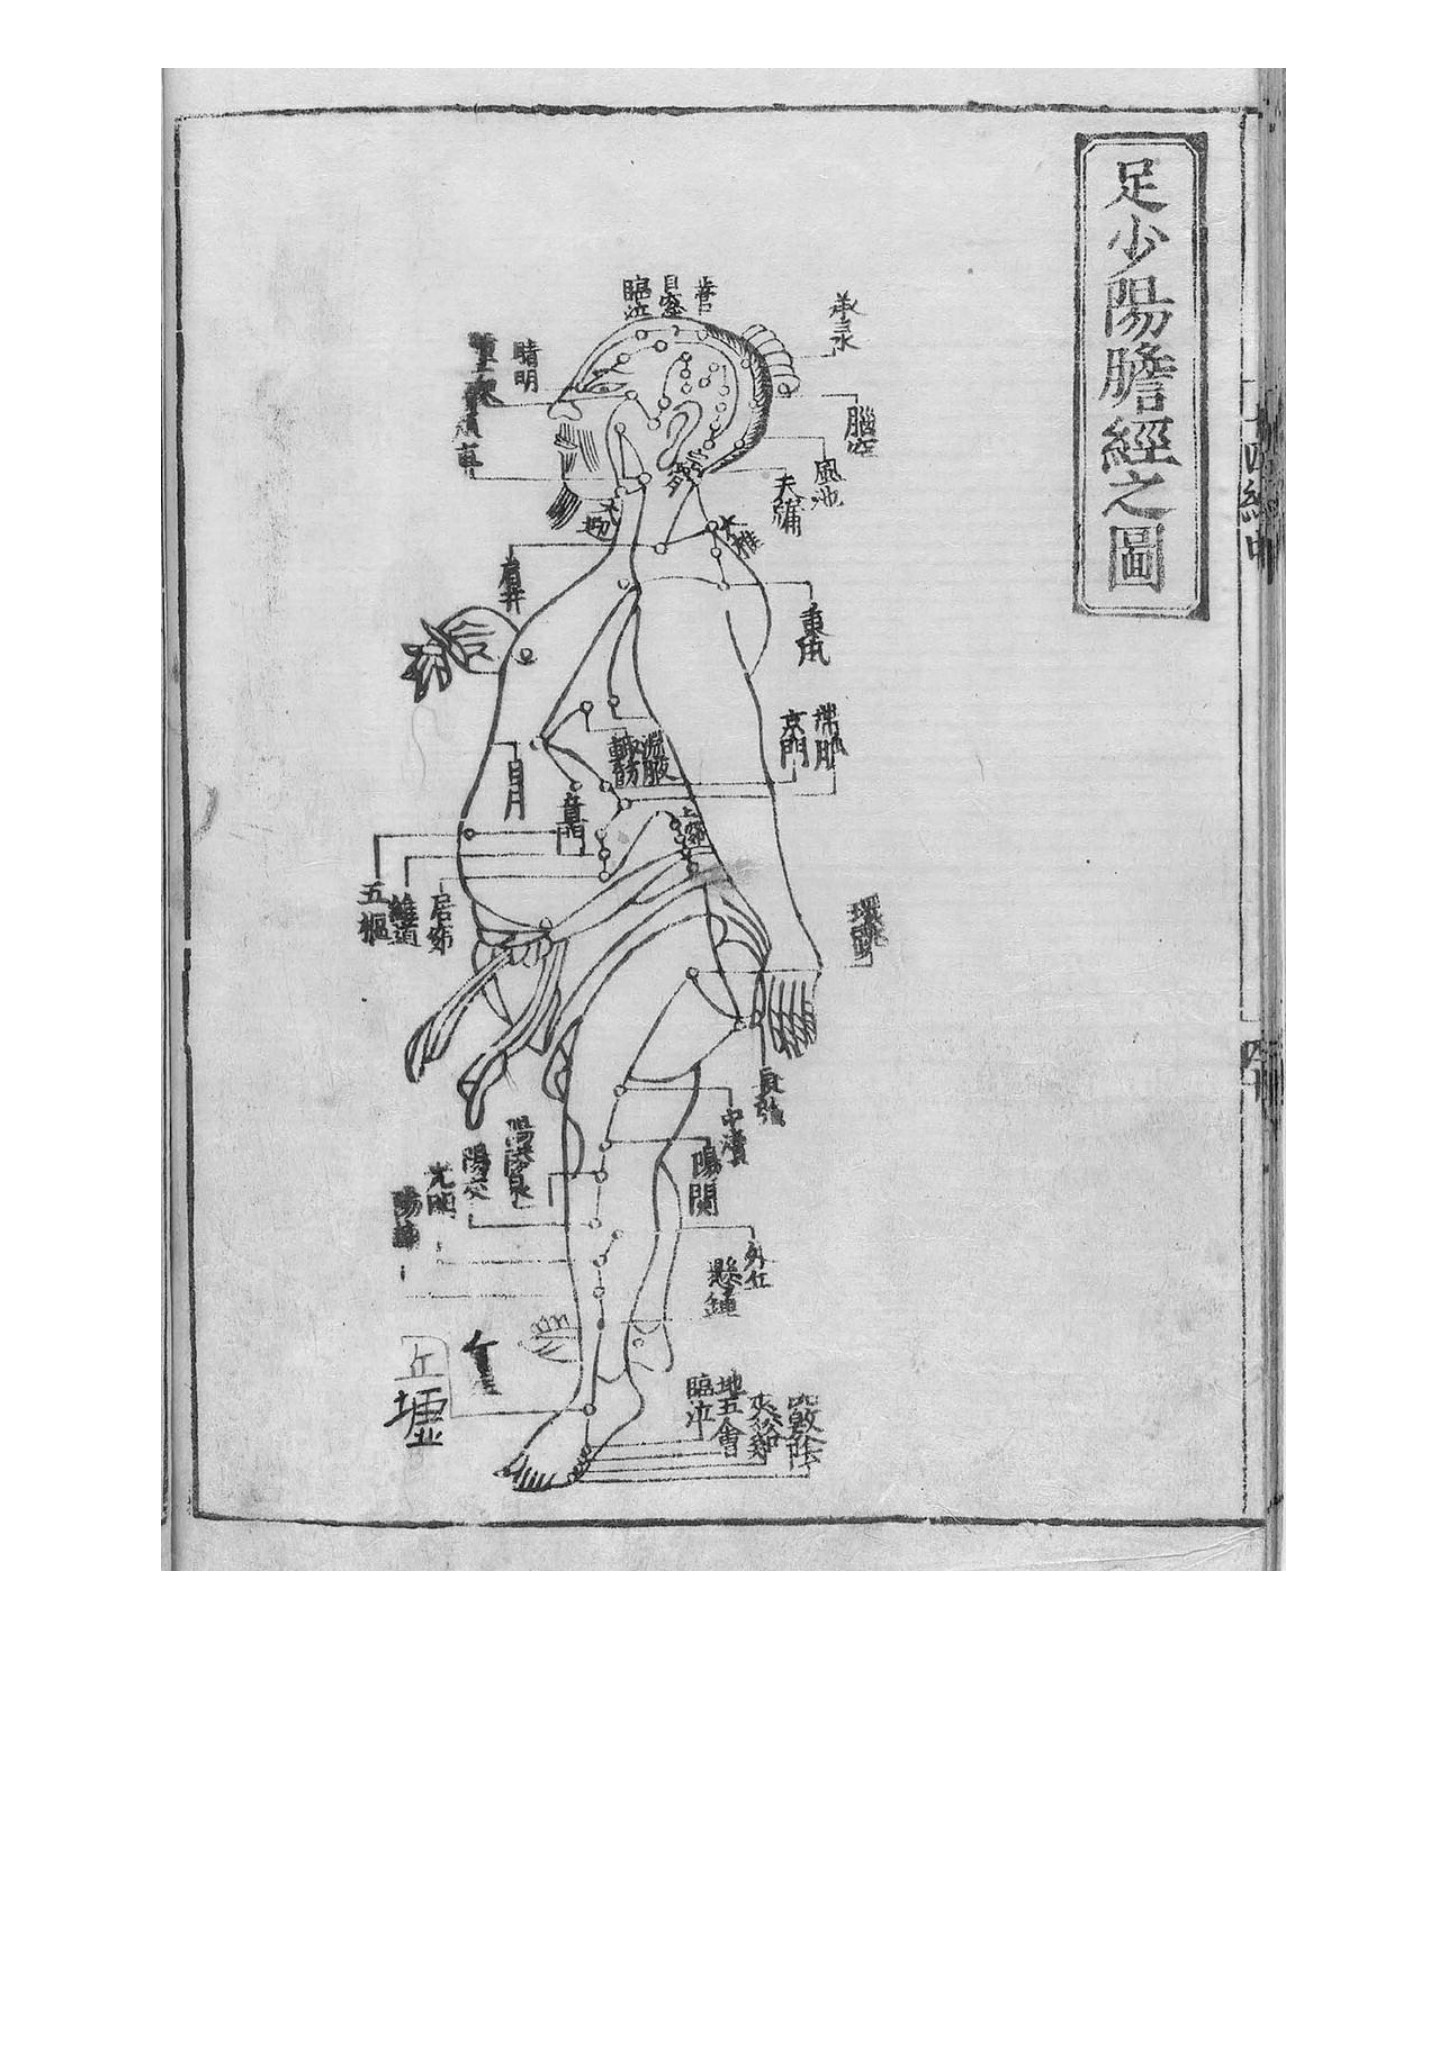 足少陽膽經之圖
承灵
正營
目窗
臨泣
睛明
腦空
風池
天牖
大椎
肩井
秉風
帶脉
京門
淵腋
輒筋
日月
章門
上窌
五樞
維道
居窌
環跳
長強
中瀆
陽關
陽陵泉
陽交
光明
陽輔
外丘
懸鍾
丘墟
臨泣
地五會
俠谿
竅陰